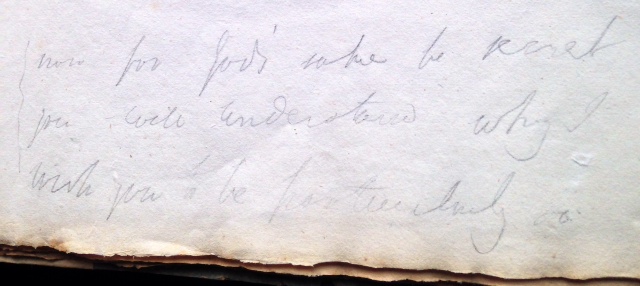 now for God's sake be secret
you will understand why I
wish you to be particularly so